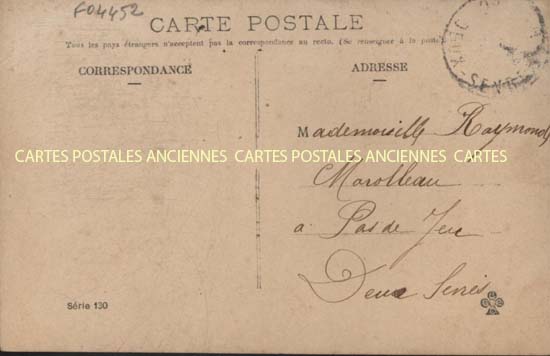 F04452
CARTE POSTALE
Tous les pays étrangers n'acceptent pas la correspondance au recto. (Se renseigner à la poste
CORRESPONDANCE
ADRESSE
DEUX-SEVRES
Mademoiselle Raymonde
CARTES POSTALES ANCIENNES CARTES POSTALES ANCIENNES CARTES
Marolleau
a Pas de Jeu
Deux Sevres
Série 130